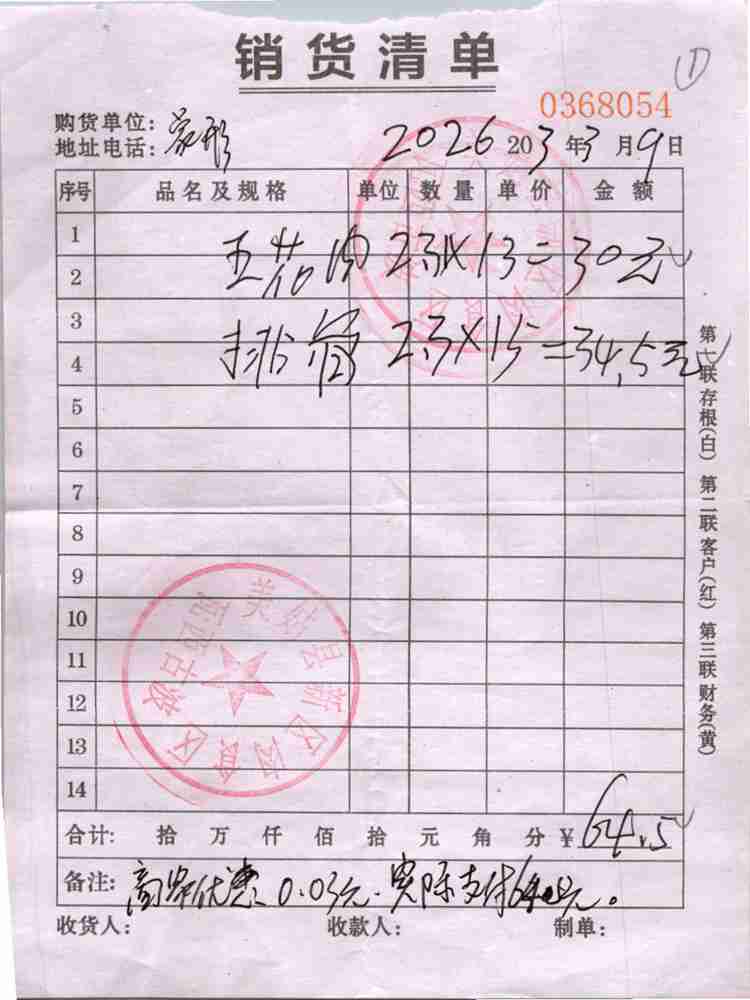 销货清单
①
0368054
购货单位:
地址电话:
2026 20 3 年 3 月 9 日
序号 品名及规格 单位 数量 单价 金额
1
五花肉 2.3X13=30元
2
3
排骨 2.3X15=34.5元
4
5
6
7
8
9
10
11
12
13
14
合计: 拾 万 仟 佰 拾 元 角 分 ¥ 64.5
备注: 商家优惠 0.03元. 实际支付
收货人: 收款人: 制单:
第一联存根(白) 第二联客户(红) 第三联财务(黄)